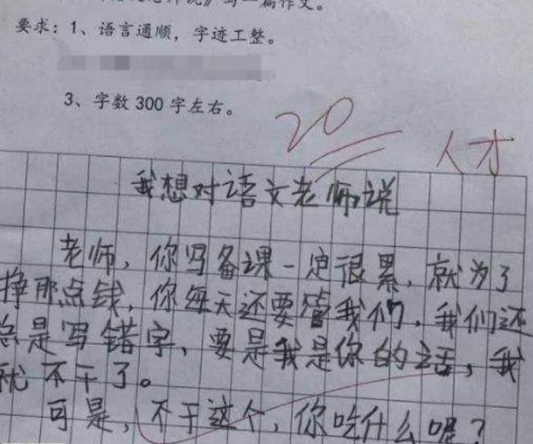 说》写一篇作文。
要求：1、语言通顺，字迹工整。
3、字数 300 字左右。
20
人才
我想对语文老师说
老师，你写备课一定很累，就为了
挣那点钱，你每天还要管我们，我们还
总是写错字，要是我是你的话，我
就不干了。
可是，不干这个，你吃什么呢？